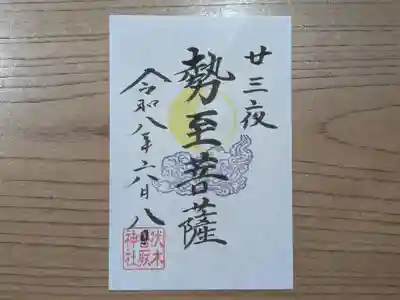 廿三夜
勢至菩薩
令和八年六月八日
神社